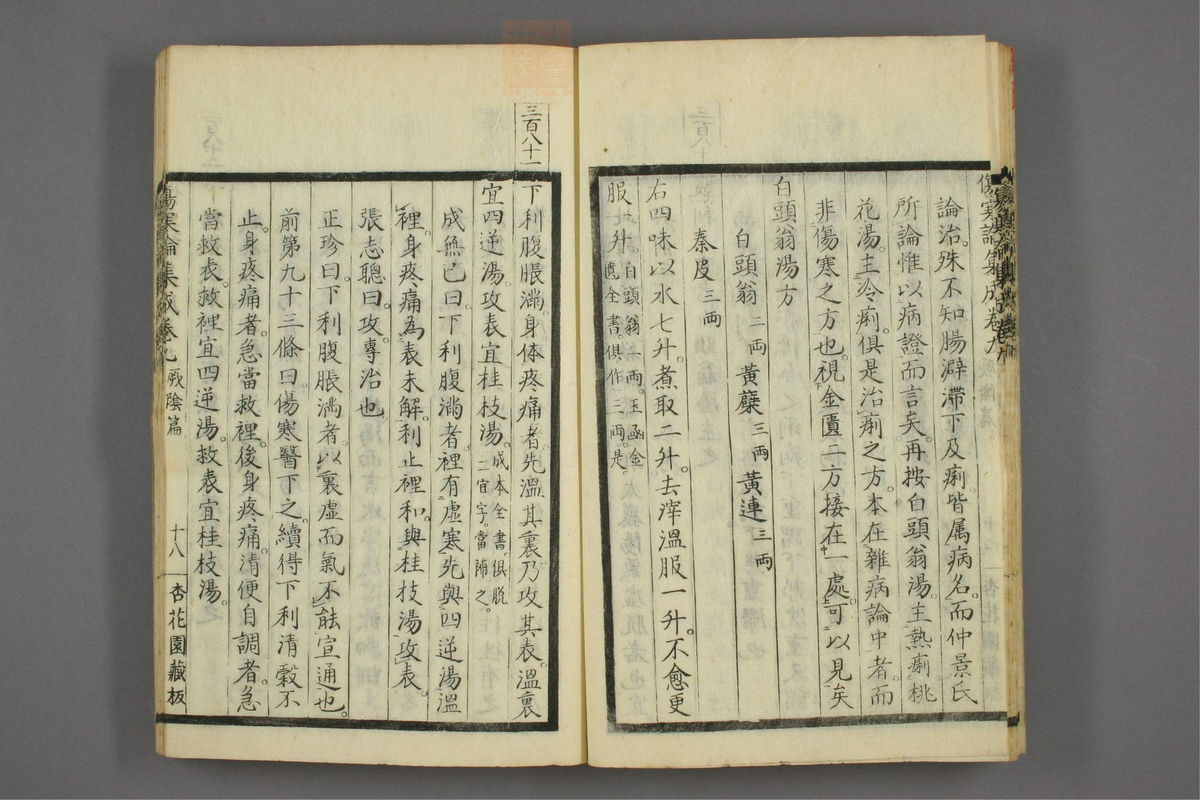 傷寒論集成卷九
論治。殊不知腸澼滯下及痢。皆属病名。而仲景氏
所論。惟以病證而言矣。再按白頭翁湯。主熱痢。桃
花湯。主冷痢。俱是治痢之方。本在雜病論中者。而
非傷寒之方也。視金匱二方接在一處。可以見矣
白頭翁湯方
白頭翁二兩黃蘗三兩黃連三兩
秦皮三兩
右四味以水七升。煮取二升。去滓溫服一升。不愈更
服一升白頭翁二兩。玉函金
匱全書。俱作三兩。是。
三百八十一
下利腹脹滿。身体疼痛者。先溫其裏。乃攻其表。溫裏
宜四逆湯。攻表宜桂枝湯。成本全書。俱脱
二宜字。當補之。
成無已曰。下利腹滿者。裡有虛寒。先與四逆湯溫
裡。身疼痛爲表未解。利止裡和。與桂技湯攻表。
張志聰曰。攻。專治也
正珍曰。下利腹脹滿者。以裏虛而氣不能宣通也。
前第九十三條曰。傷寒醫下之。續得下利清穀不
止。身疼痛者。急當救裡。後身疼痛。清便自調者。急
當救表。救裡宜四逆湯。救表宜桂枝湯。
傷寒論集成卷九 厥陰篇 十八 杏花園藏板